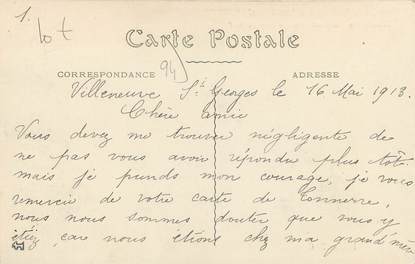 1.
lot
94
Carte Postale
CORRESPONDANCE
ADRESSE
Villeneuve St Georges le 16 Mai 1913.
Chère amie
Vous devez me trouver négligente de
ne pas vous avoir répondu plus tôt
mais je prends mon courage, je vous
remercie de votre carte de Tonnerre,
nous nous sommes douter que vous y
étiez, car nous étions chez ma grand'mère